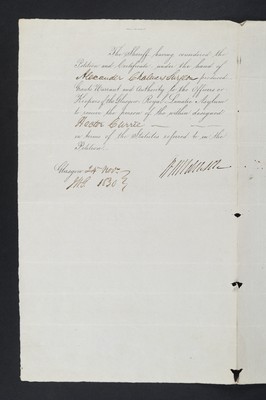 The Sheriff having considered the
Petition and Certificate under the hand of
Alexander Chalmers Surgeon produced
Grants Warrant and Authority to the Officers or
Keepers of the Glasgow Royal Lunatic Asylum
to receive the person of the within designed
Hector Currie
in terms of the Statutes referred to in the
Petition.
Glasgow 24 Novr.
1830